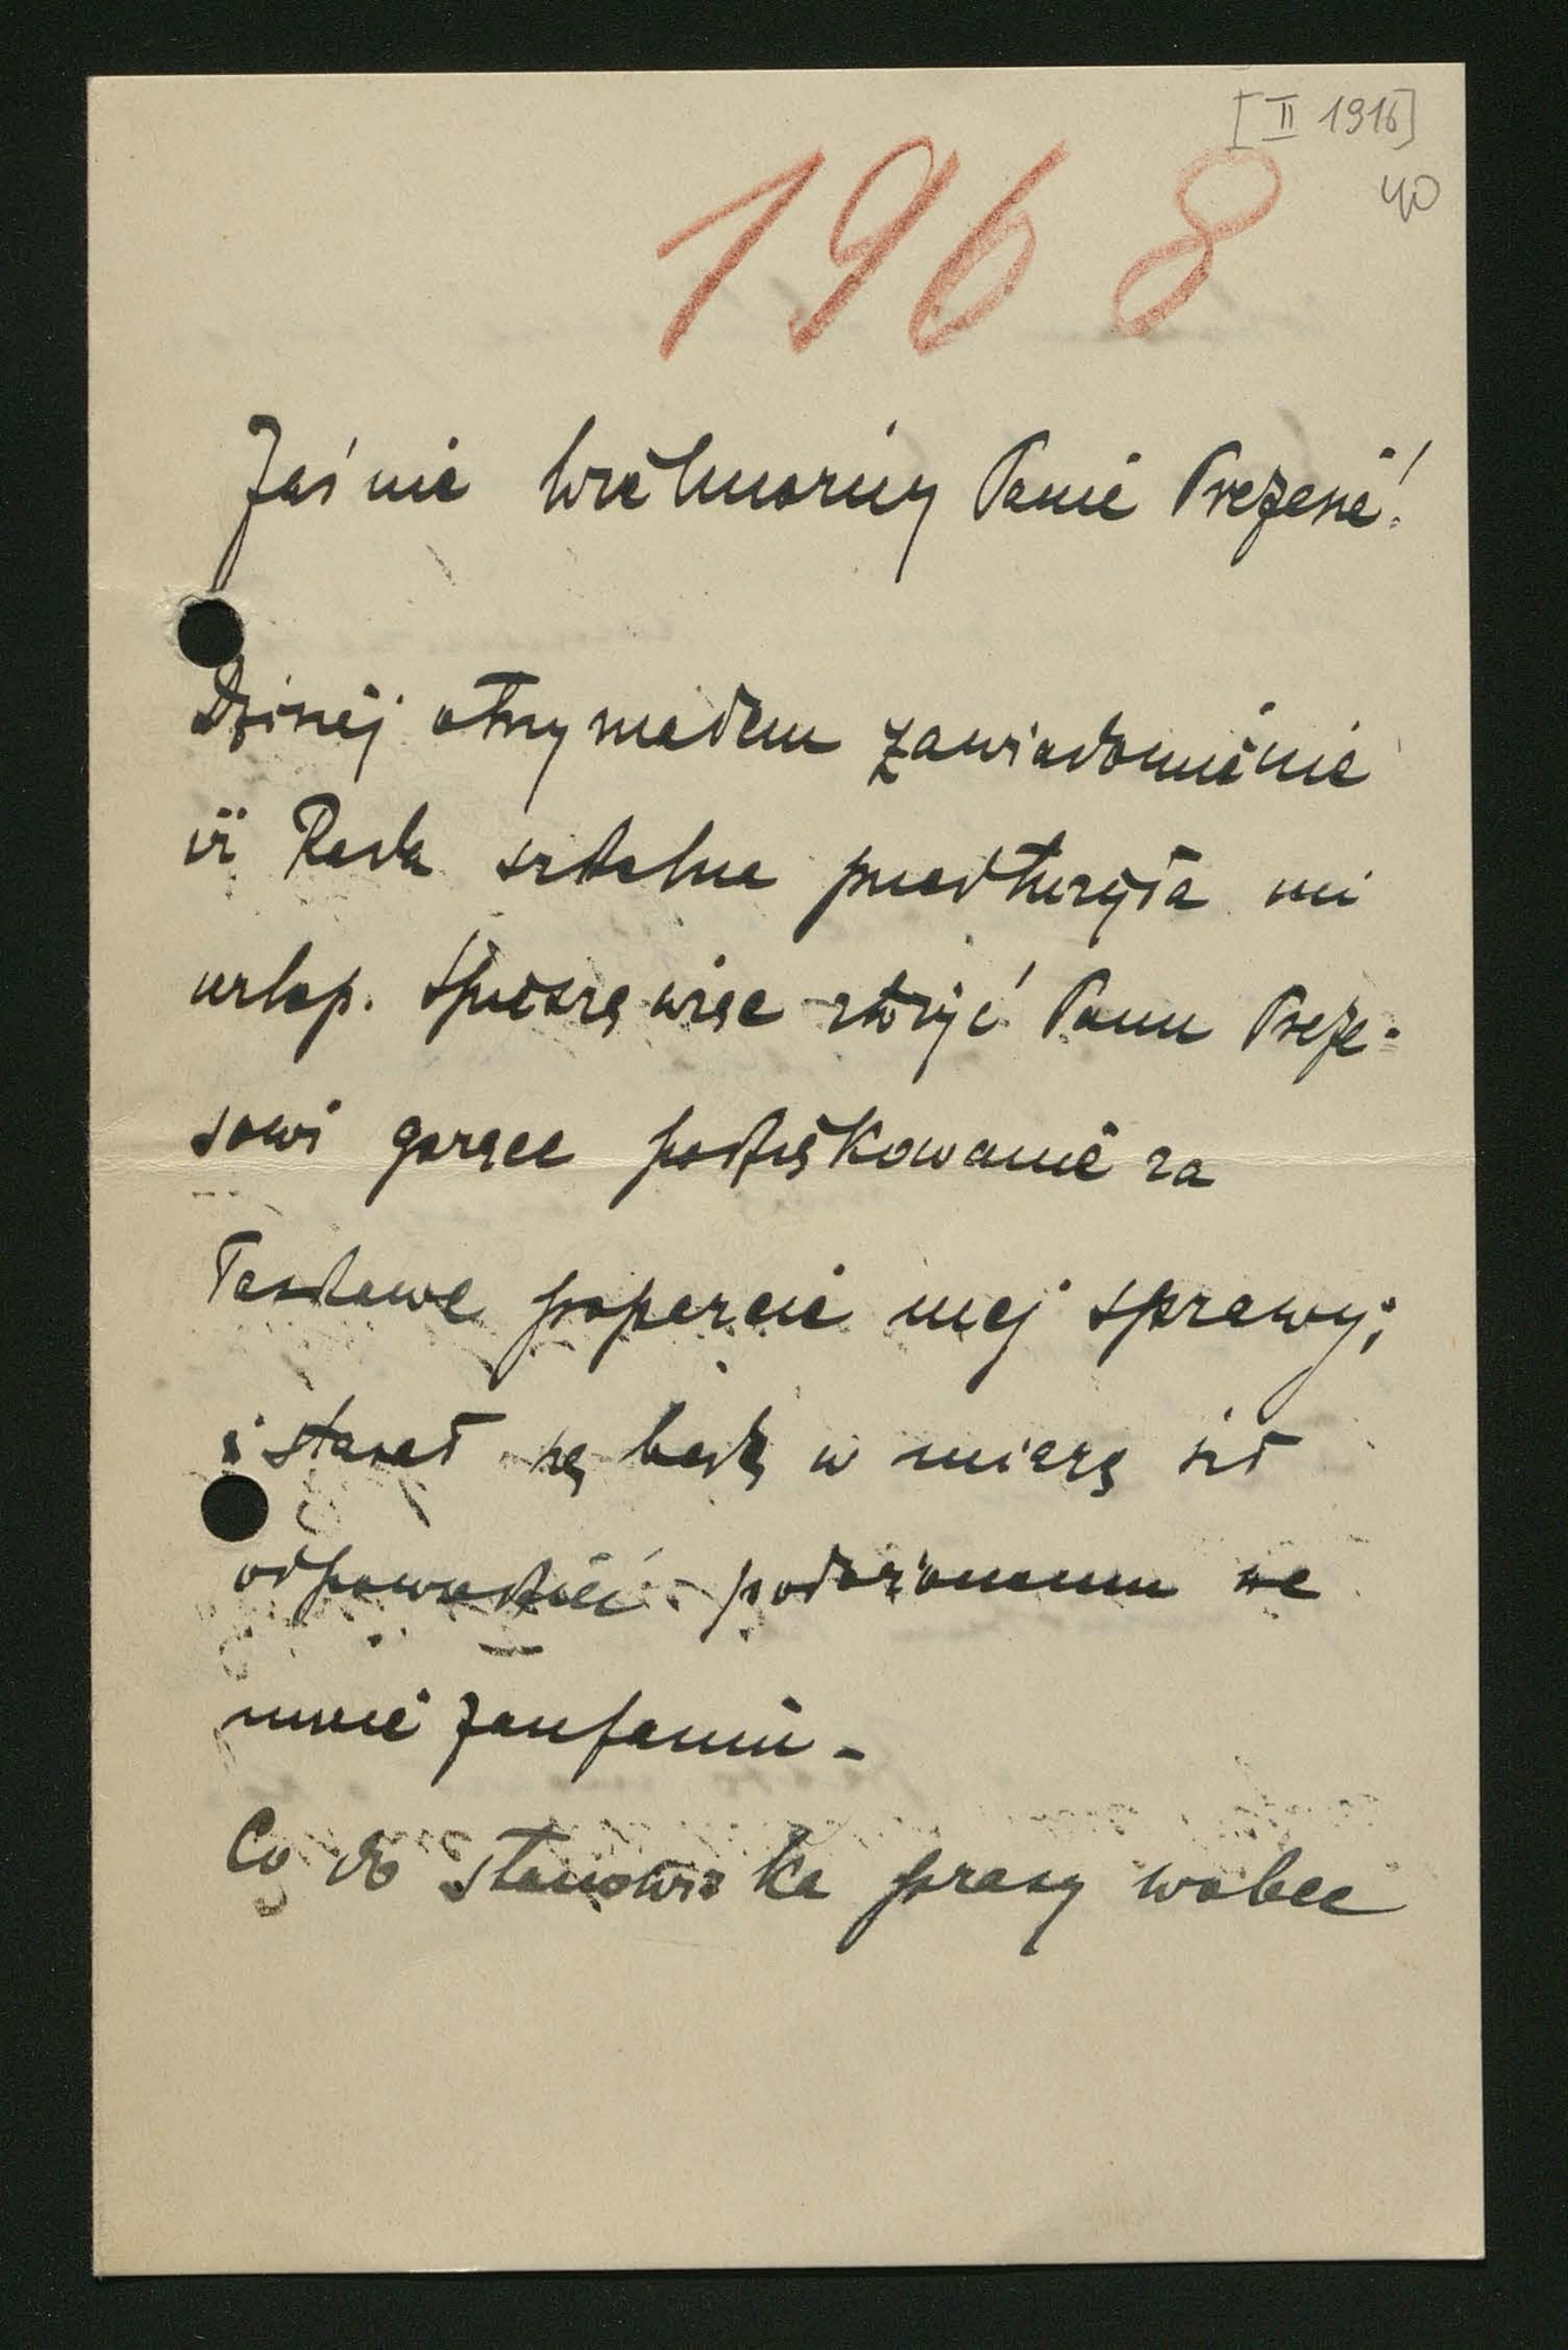 [II 1916]
40
1968
Jaśnie Wielmożny Panie Prezesie!
Dzisiej otrzymałem zawiadomienie
iż Rada szkolna przedłużyła mi
urlop. Spieszę więc złożyć Panu Preze-
sowi gorące podziękowanie za
łaskawe poparcie mej sprawy;
i starał się będę w miarę sił
odpowiedzieć położonemu we
mnie zaufaniu -
Co do stanowiska prasy wobec